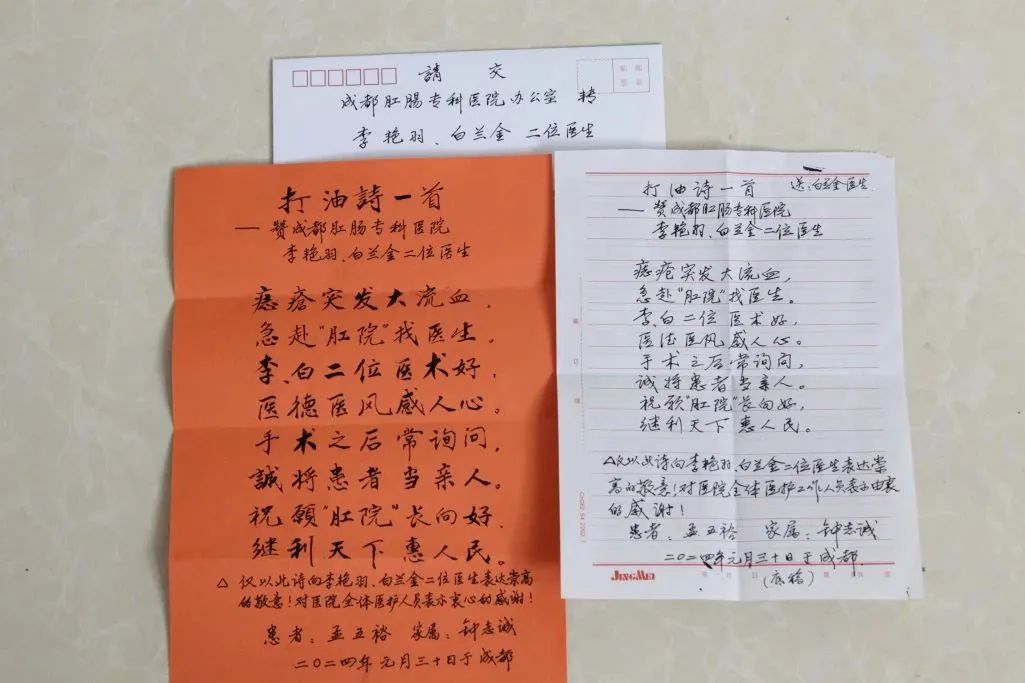 請 交
成都肛腸专科医院办公室 转
李艳羽、白兰金 二位医生
打油詩一首
—— 赞成都肛肠专科医院
李艳羽、白兰金二位医生
痣疮突发大流血，
急赴"肛院"找医生。
李、白二位医术好，
医德医风感人心。
手术之后常询问，
誠将患者当亲人。
祝願"肛院"长向好，
继利天下惠人民。
△ 仅以此诗向李艳羽、白兰金二位医生表达崇高
的敬意！对医院全体医护人员表示衷心的感谢！
患者：孟五裕 家属：钟志诚
二〇二四年元月三十日于成都
打油詩一首 送：白兰金医生
—— 赞成都肛肠专科医院
李艳羽、白兰金二位医生
痣疮突发大流血，
急赴"肛院"找医生。
李、白二位医术好，
医德医风感人心。
手术之后常询问，
诚将患者当亲人。
祝願"肛院"长向好，
继利天下惠人民。
△仅以此诗向李艳羽、白兰金二位医生表达崇
高的敬意！对医院全体医护工作人员表示由衷
的感谢！
患者：孟五裕 家属：钟志诚
二〇二四年元月三十日于成都
JINGMEI
(底稿)